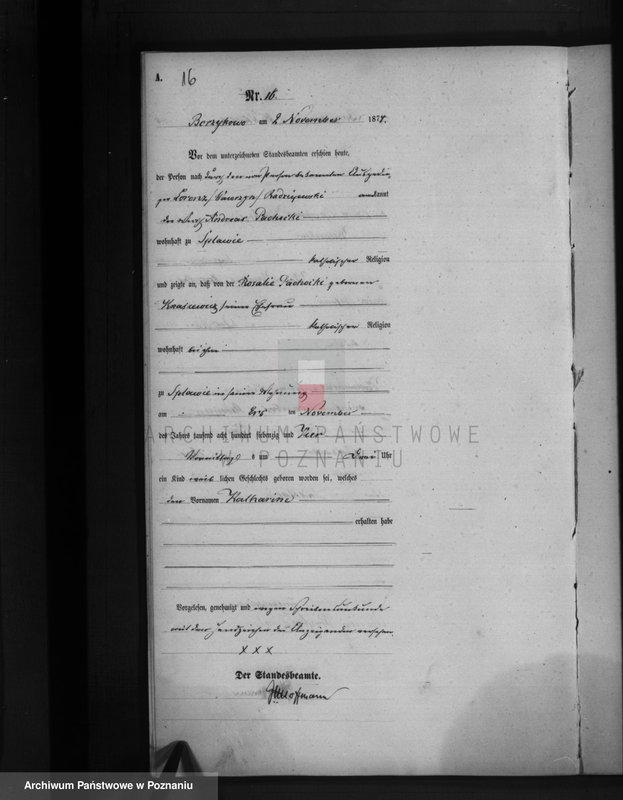 A. 16
Nr. 16.
Borzykowo am 2 November 1874.
Vor dem unterzeichneten Standesbeamten erschien heute,
der Person nach durch den von Person bekannten
Lorenz /Wawrzyn/ anerkannt
der Wirth Andreas Pachocki
wohnhaft zu Splawie
katholischer Religion
und zeigte an, daß von der Rosalie Pachocki geborenen
seiner Ehefrau
katholischer Religion
wohnhaft bei ihm
zu Splawie in seiner Wohnung
am ten November
des Jahres tausend acht hundert siebenzig und Vier
Vormittags um Uhr
ein Kind weiblichen Geschlechts geboren worden sei, welches
den Vornamen Katharine
erhalten habe
Vorgelesen, genehmigt und wegen Schreibensunkunde
mit dem Handzeichen des Anzeigenden versehen
x x x
Der Standesbeamte.
Hoffmann
ARCHIWUM PAŃSTWOWE
W POZNANIU
Archiwum Państwowe w Poznaniu